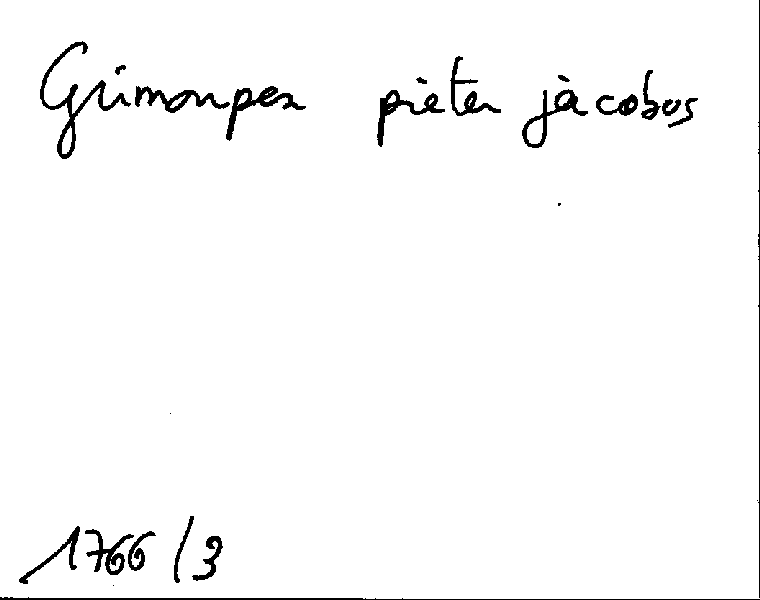 Grimonpez pieter jacobus
1766/3